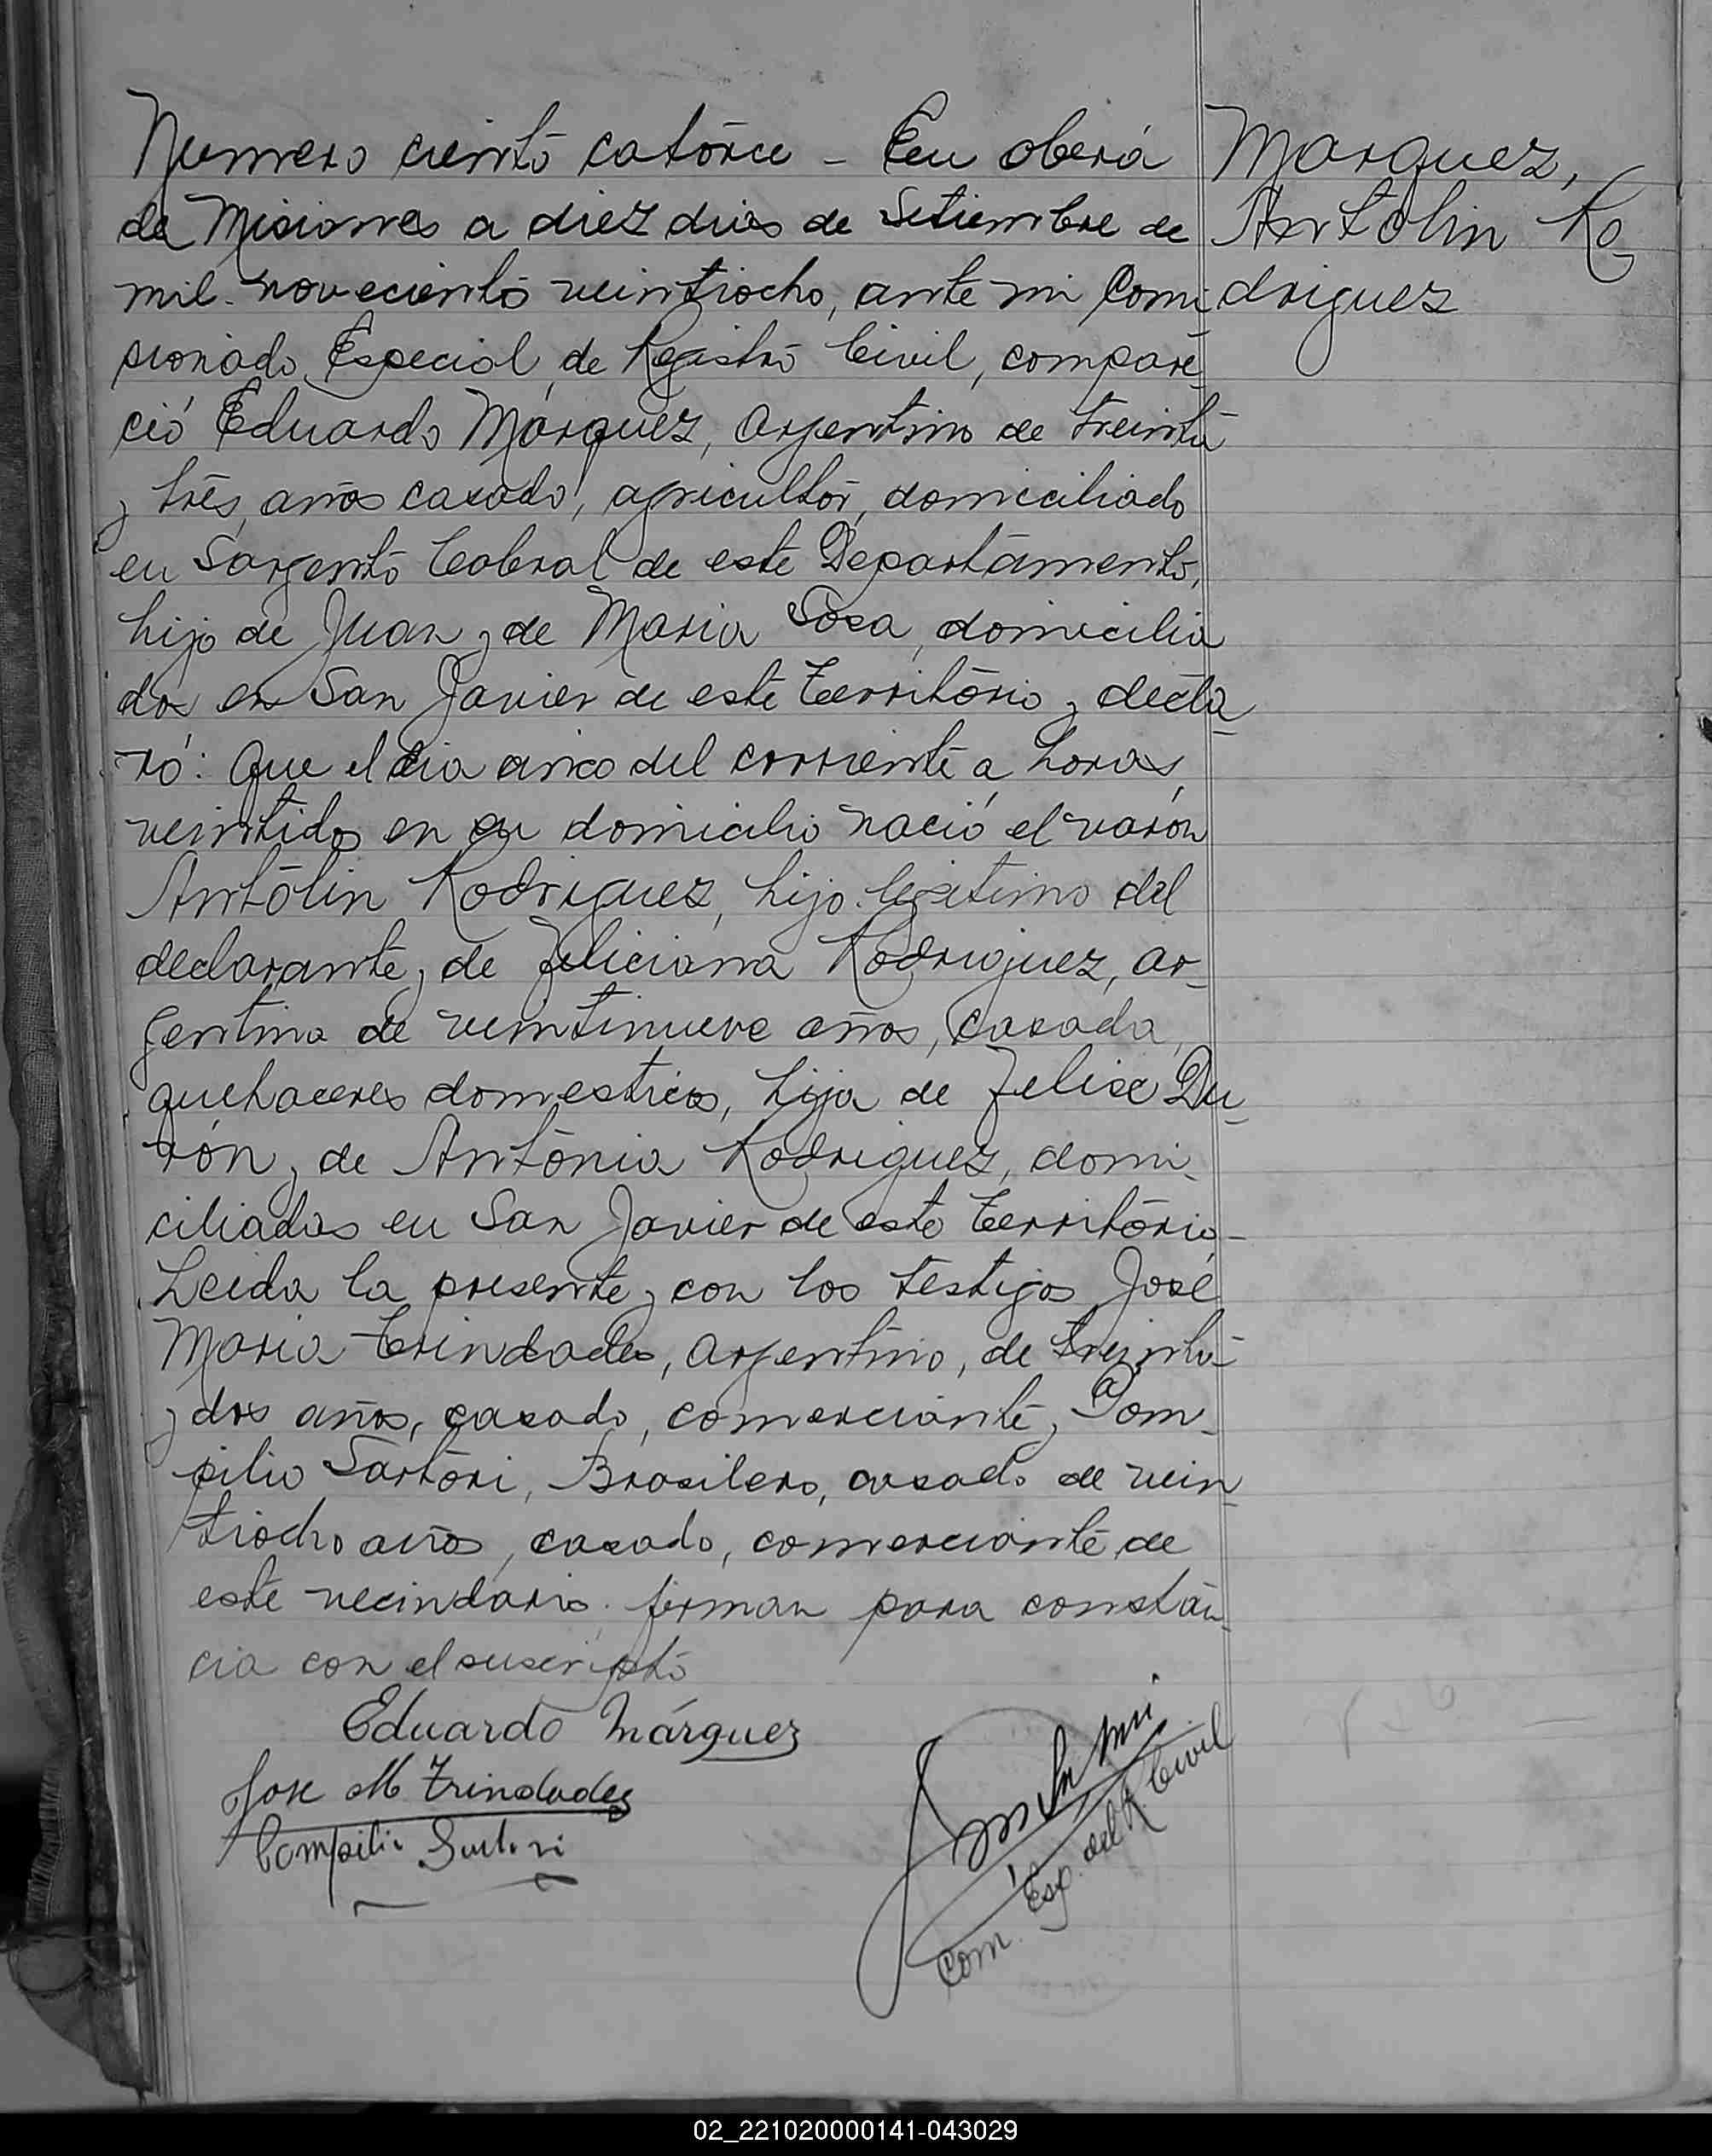 Numero ciento catorce - En oberá
de Misiones a diez dias de Setiembre de
mil novecientos veintiocho, ante mi Comi
sionado Especial de Registro Civil, compare_
ció Eduardo Márquez, Argentino de treinta
y trés años casado, agricultor, domiciliado
en Sargento Cabral de este Departamento,
hijo de Juan y de Maria Sosa, domicilia
dos en San Javier de este Territorio y decla_
ró: Que el dia cinco del corriente a horas
veintidos en su domicilio nació el varón
Antolin Rodriguez, hijo legitimo del
declarante y de Feliciana Rodriguez, ar_
gentina de veintinueve años, casada,
quehaceres domesticos, hija de Felise Du_
rón y de Antonia Rodriguez, domi_
ciliados en San Javier de este Territorio-
Leida la presente y con los testigos José
Maria Trindades, argentino, de treinta
y dos años, casado, comerciante y Pom_
pilio Sartori, Brasilero, casado de vein_
tiocho años, casado, comerciante de
este vecindario firman para constan_
cia con el suscripto
Marquez,
Antolin Ro_
driguez
Eduardo Márquez
Jose M Trindades
Pompilio Sartori
Ante Mi
Com. Esp. del R. Civil
02_221020000141-043029